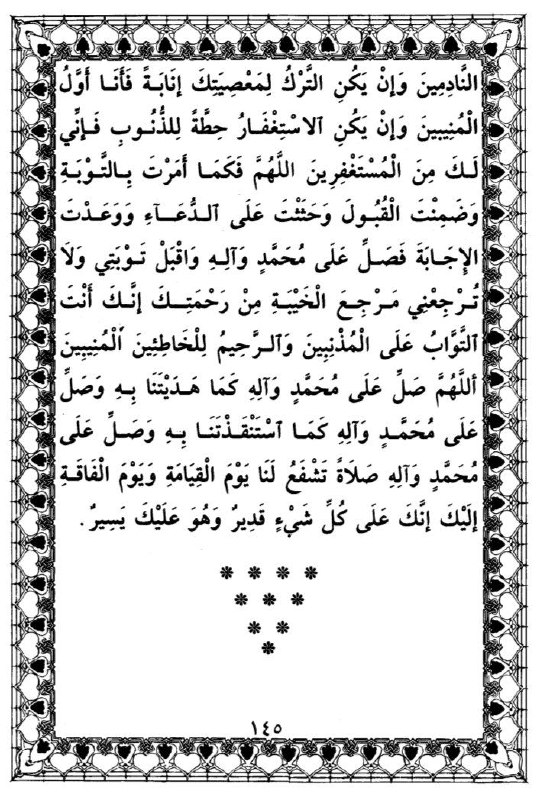 النَّادِمِينَ وَإِنْ يَكُنِ التَّرْكُ لِمَعْصِيَتِكَ إِنَابَةً فَأَنَا أَوَّلُ
الْمُنِيبِينَ وَإِنْ يَكُنِ الاسْتِغْفَارُ حِطَّةً لِلذُّنُوبِ فَإِنِّي
لَكَ مِنَ الْمُسْتَغْفِرِينَ اللَّهُمَّ فَكَمَا أَمَرْتَ بِالتَّوْبَةِ
وَضَمِنْتَ الْقُبُولَ وَحَثَثْتَ عَلَى الدُّعَآءِ وَوَعَدْتَ
الإِجَابَةَ فَصَلِّ عَلَى مُحَمَّدٍ وَآلِهِ وَاقْبَلْ تَوْبَتِي وَلَا
تُرْجِعْنِي مَرْجِعَ الْخَيْبَةِ مِنْ رَحْمَتِكَ إِنَّكَ أَنْتَ
ٱلتَّوَّابُ عَلَى الْمُذْنِبِينَ وَٱلرَّحِيمُ لِلْخَاطِئِينَ ٱلْمُنِيبِينَ
أللَّهُمَّ صَلِّ عَلَى مُحَمَّدٍ وَآلِهِ كَمَا هَدَيْتَنَا بِهِ وَصَلِّ
عَلَى مُحَمَّدٍ وَآلِهِ كَمَا ٱسْتَنْقَذْتَنَا بِهِ وَصَلِّ عَلَى
مُحَمَّدٍ وَآلِهِ صَلَاةً تَشْفَعُ لَنَا يَوْمَ الْقِيَامَةِ وَيَوْمَ الْفَاقَةِ
إِلَيْكَ إِنَّكَ عَلَى كُلِّ شَيْءٍ قَدِيرٌ وَهُوَ عَلَيْكَ يَسِيرٌ .
١٤٥